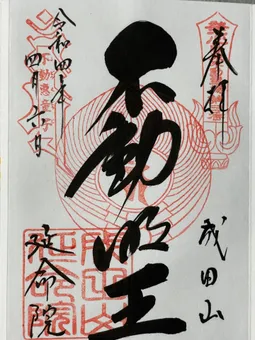 奉拝
成田山
不動明王
令和四年
四月六日
延命院